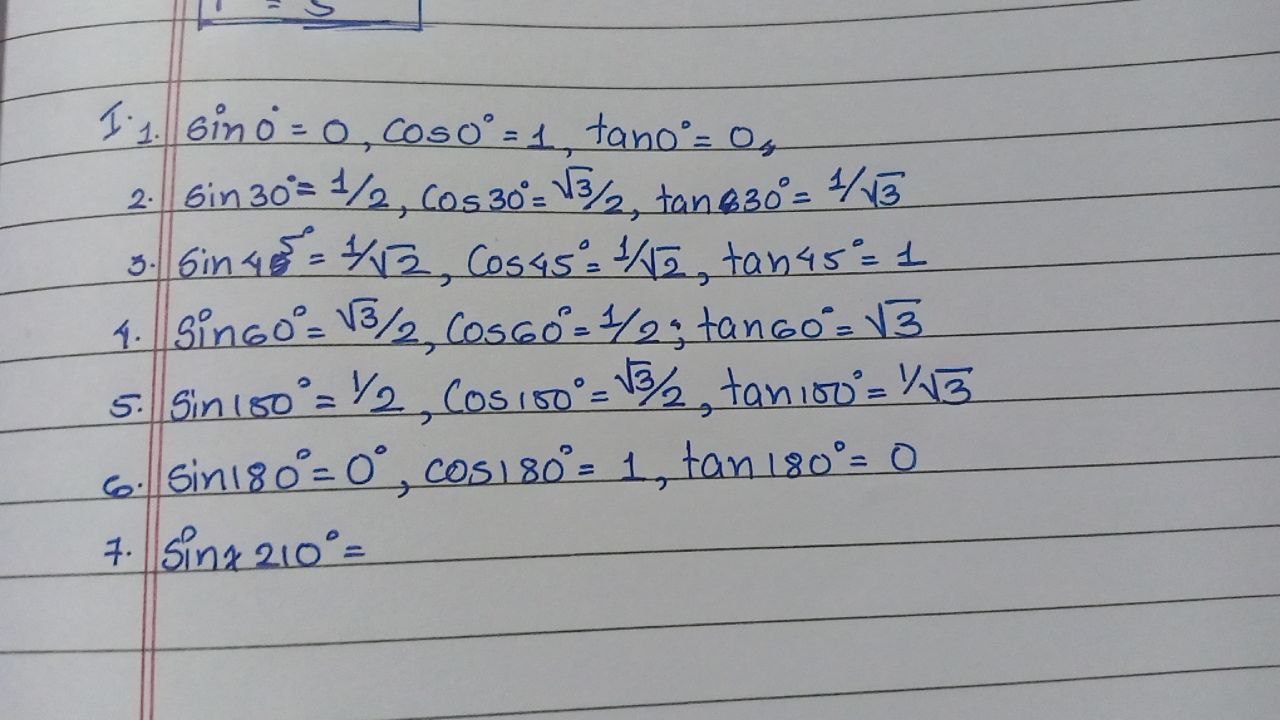 I. 1. sin 0° = 0, cos 0° = 1, tan 0° = 0,
2. sin 30° = 1/2, cos 30° = √3/2, tan 30° = 1/√3
3. sin 45° = 1/√2, cos 45° = 1/√2, tan 45° = 1
4. sin 60° = √3/2, cos 60° = 1/2; tan 60° = √3
5. sin 150° = 1/2, cos 150° = √3/2, tan 150° = 1/√3
6. sin 180° = 0°, cos 180° = 1, tan 180° = 0
7. sin 210° =